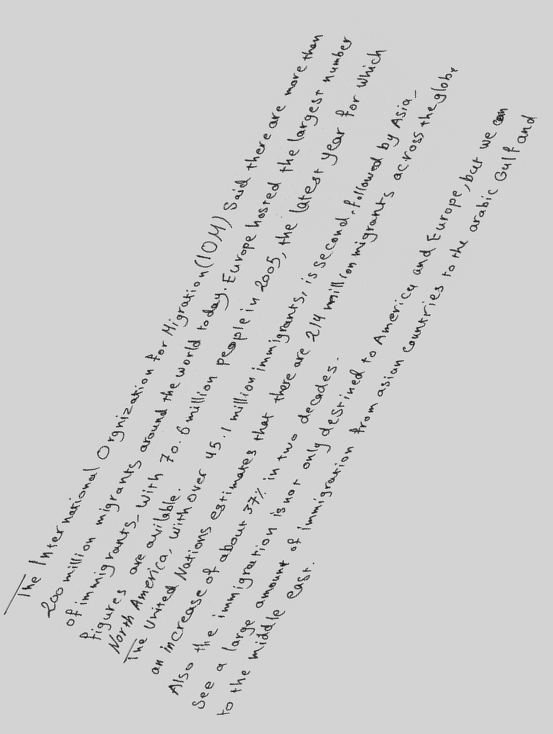 The International Orgnization for Migration (IOM) Said there are more than
200 million migrants around the world today. Europe hosted the largest number
of immigrants_ with 70.6 million people in 2005, the latest year for which
figures are avilable.
North America, with over 45.1 million immigrants, is second, followed by Asia_
The United Nations estimates that there are 214 million migrants across the globe
an increase of about 37% in two decades.
Also the immigration is not only destined to America and Europe, but we can
see a large amount of immigration from asian countries to the arabic Gulf and
to the middle east.